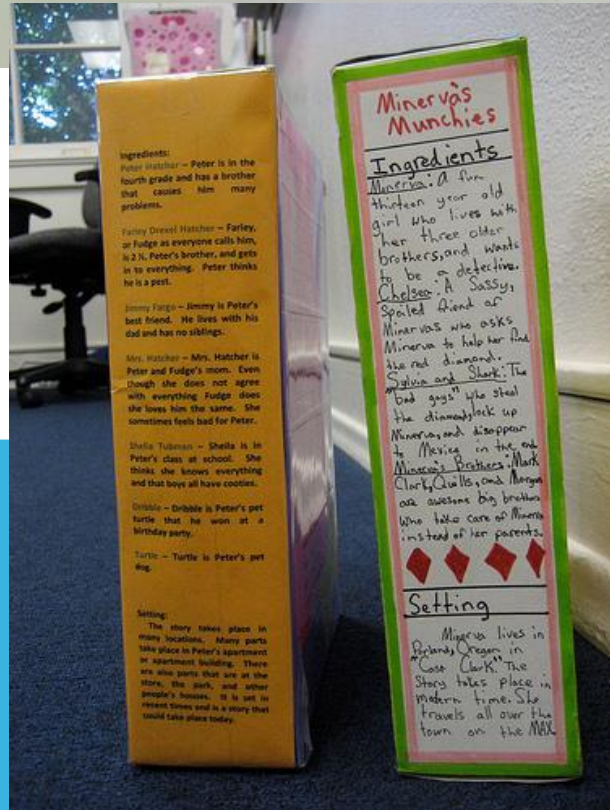 Ingredients:
Peter Hatcher – Peter is in the
fourth grade and has a brother
that causes him many
problems.
Farley Drexel Hatcher – Farley,
or Fudge as everyone calls him,
is 2 ½, Peter's brother, and gets
in to everything. Peter thinks
he is a pest.
Jimmy Fargo – Jimmy is Peter's
best friend. He lives with his
dad and has no siblings.
Mrs. Hatcher – Mrs. Hatcher is
Peter and Fudge's mom. Even
though she does not agree
with everything Fudge does
she loves him the same. She
sometimes feels bad for Peter.
Shelia Tubman – Sheila is in
Peter's class at school. She
thinks she knows everything
and that boys all have cooties.
Dribble – Dribble is Peter's pet
turtle that he won at a
birthday party.
Turtle – Turtle is Peter's pet
dog.
Setting:
The story takes place in
many locations. Many parts
take place in Peter's apartment
or apartment building. There
are also parts that are at the
store, the park, and other
people's houses. It is set in
recent times and is a story that
could take place today.
Minerva's
Munchies
Ingredients
Minerva: A fun
thirteen year old
girl who lives with
her three older
brothers, and wants
to be a detective.
Chelsea: A Sassy,
spoiled friend of
Minervas who asks
Minerva to help her find
the red diamond.
Sylvia and Shark: The
"bad guys" who steal
the diamond, lock up
Minerva, and disappear
to Mexico in the end
Minerva's Brothers: Mark
Clark, Quills, and Morgan
are awesome big brothers
who take care of Minerva
instead of her parents.
Setting
Minerva lives in
Portland, Oregon in
Clark" The
Story takes place in
modern time. She
travels all over the
town on the MAX